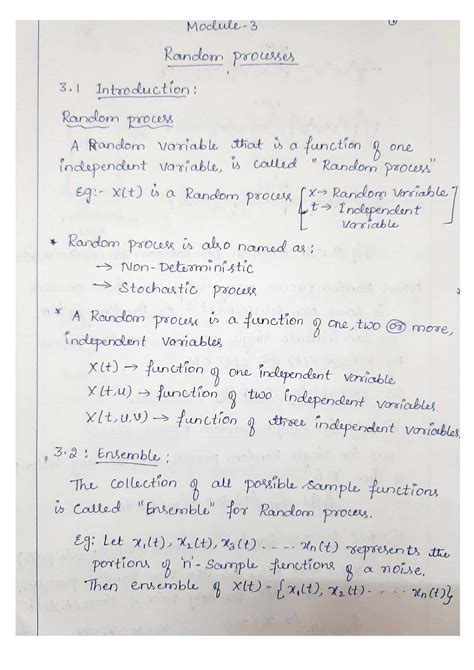 Module-3
①
Random processes
3.1 Introduction:
Random process
A Random variable that is a function of one
independent variable, is called "Random process"
Eg:- X(t) is a Random process [X→ Random Variable
t→ Independent
variable]
* Random process is also named as:
→ Non-Deterministic
→ Stochastic process
* A Random process is a function of one, two (or) more,
independent variables
X(t) → function of one independent variable
X(t,u) → function of two independent variables
X(t,u,v) → function of three independent variables.
3.2: Ensemble:
The collection of all possible sample functions
is called "Ensemble" for Random process.
Eg: Let x₁(t), x₂(t), x₃(t) ..... xn(t) represents the
portions of 'n'- sample functions of a noise.
Then ensemble of X(t) - {x₁(t), x₂(t) - .... xn(t)}